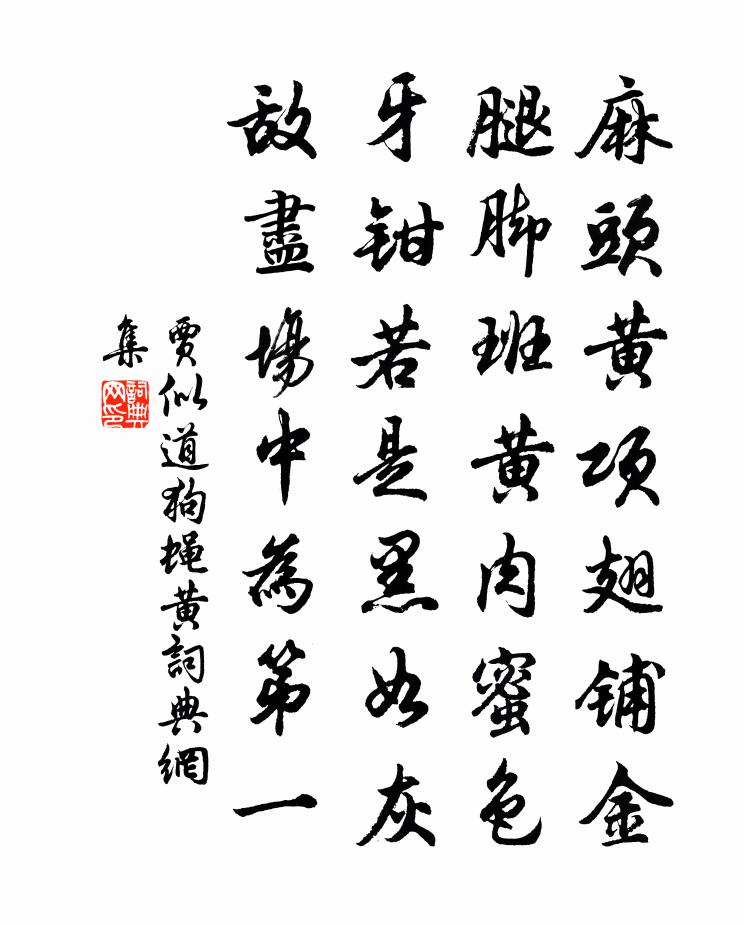 麻頭黄项翅铺金
腿脚班黄肉蜜色
牙钳若是黑如灰
敌盡場中為第一
賈似道狗蝇黄詞典網
集
詞典
网印